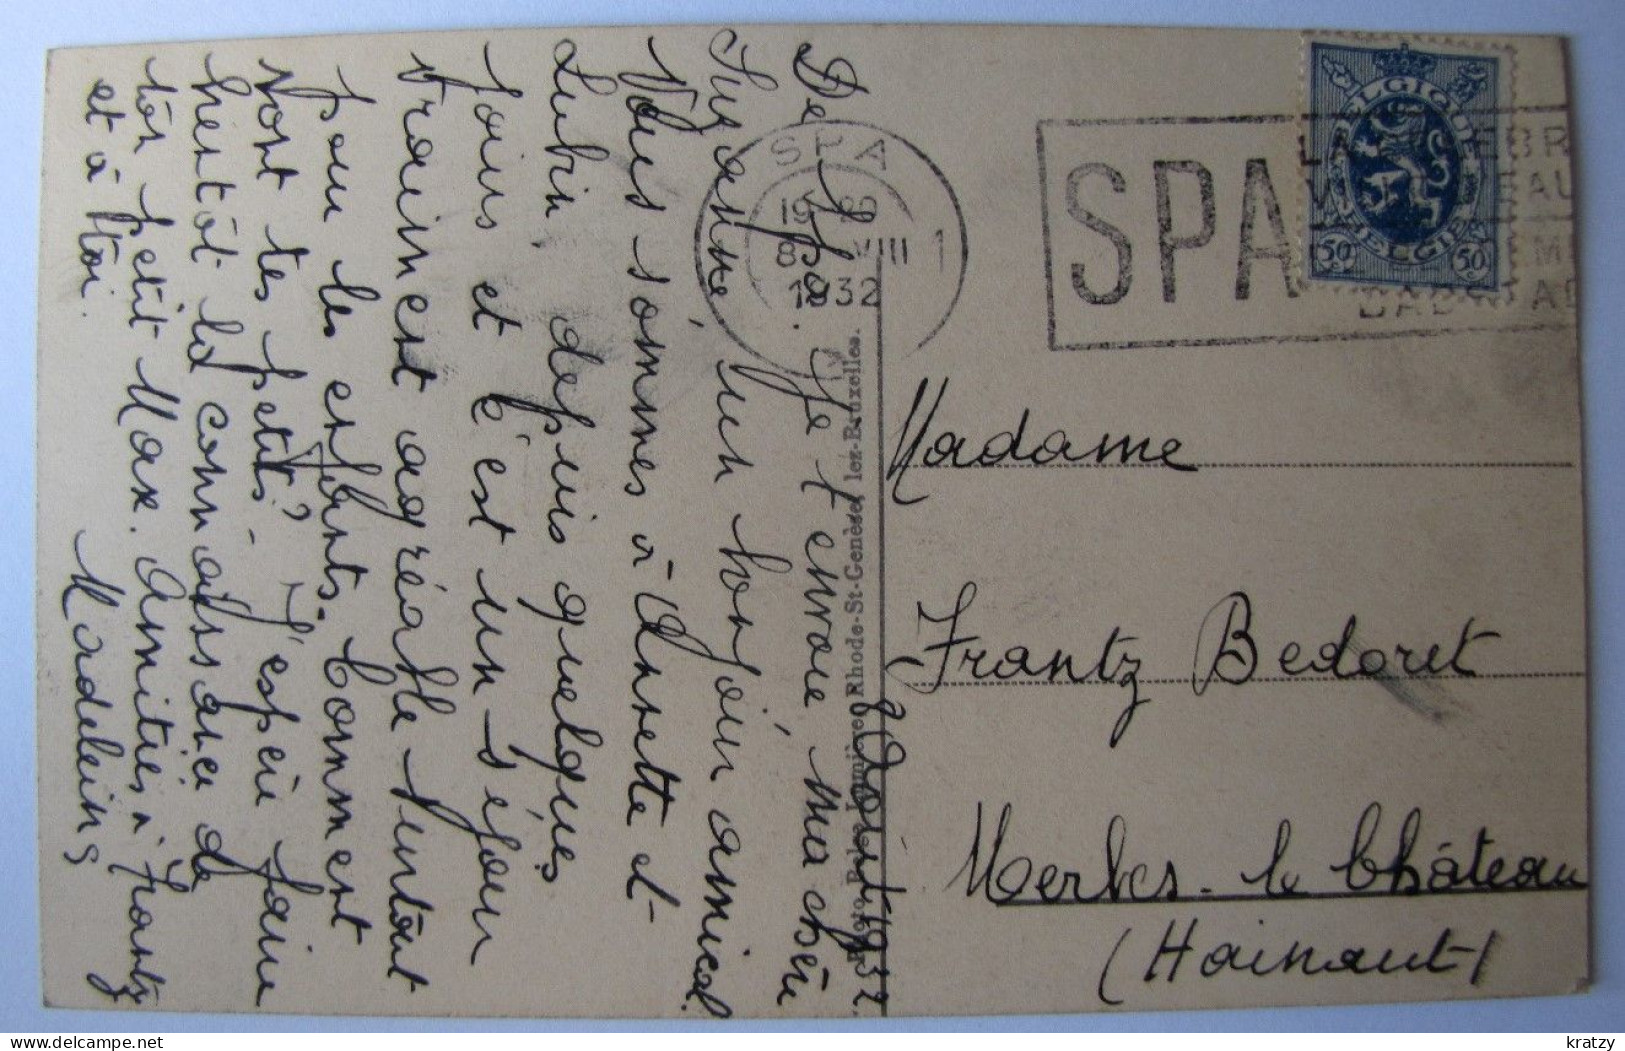 7 Août 1932.
De Spa. Je t'envoie, ma chère
Suzanne, un bonjour amical.
Nous sommes à Annette et
Lubin, depuis quelques
jours et c'est un séjour
vraiment agréable surtout
pour les enfants. Comment
vont tes petits? J'espère faire
bientôt la connaissance de
ton petit Max. Amitiés à Frantz
et à toi.
Madeleine
Madame
Frantz Bedoret
Merbes-le Château
(Hainaut)
SPA
19 20
8 VIII
1932
1
SPA
BELGIQUE
BELGIE
50c 50c
Rhode-St-Genèse, lez-Bruxelles.
kratzy